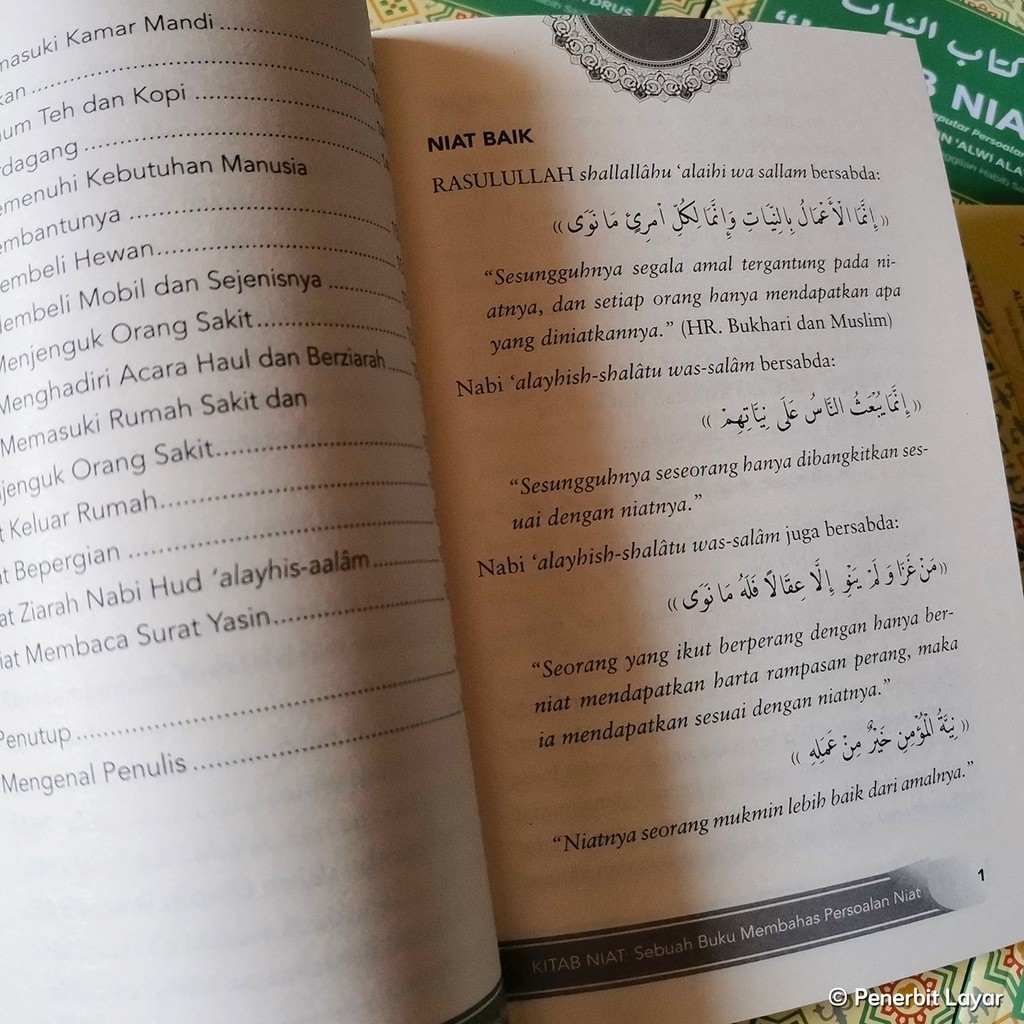 asuki Kamar Mandi
kan
um Teh dan Kopi
dagang
emenuhi Kebutuhan Manusia
embantunya
embeli Hewan
embeli Mobil dan Sejenisnya
Menjenguk Orang Sakit
Menghadiri Acara Haul dan Berziarah
Memasuki Rumah Sakit dan
jenguk Orang Sakit
t Keluar Rumah
at Bepergian
at Ziarah Nabi Hud ‘alayhis-aalâm
iat Membaca Surat Yasin
Penutup
Mengenal Penulis
NIAT BAIK
RASULULLAH shallallâhu ‘alaihi wa sallam bersabda:
« إِنَّمَا الْأَعْمَالُ بِالنِّيَّاتِ وَإِنَّمَا لِكُلِّ امْرِئٍ مَا نَوَى »
“Sesungguhnya segala amal tergantung pada ni-
atnya, dan setiap orang hanya mendapatkan apa
yang diniatkannya.” (HR. Bukhari dan Muslim)
Nabi ‘alayhish-shalâtu was-salâm bersabda:
« إِنَّمَا يُبْعَثُ النَّاسُ عَلَى نِيَّاتِهِمْ »
“Sesungguhnya seseorang hanya dibangkitkan ses-
uai dengan niatnya.”
Nabi ‘alayhish-shalâtu was-salâm juga bersabda:
« مَنْ غَزَا وَلَمْ يَنْوِ إِلَّا عِقَالًا فَلَهُ مَا نَوَى »
“Seorang yang ikut berperang dengan hanya ber-
niat mendapatkan harta rampasan perang, maka
ia mendapatkan sesuai dengan niatnya.”
« نِيَّةُ الْمُؤْمِنِ خَيْرٌ مِنْ عَمَلِهِ »
“Niatnya seorang mukmin lebih baik dari amalnya.”
1
KITAB NIAT: Sebuah Buku Membahas Persoalan Niat
كتاب النيات
B NIA
putar Persoalan
IN ‘ALWI ALA
© Penerbit Layar